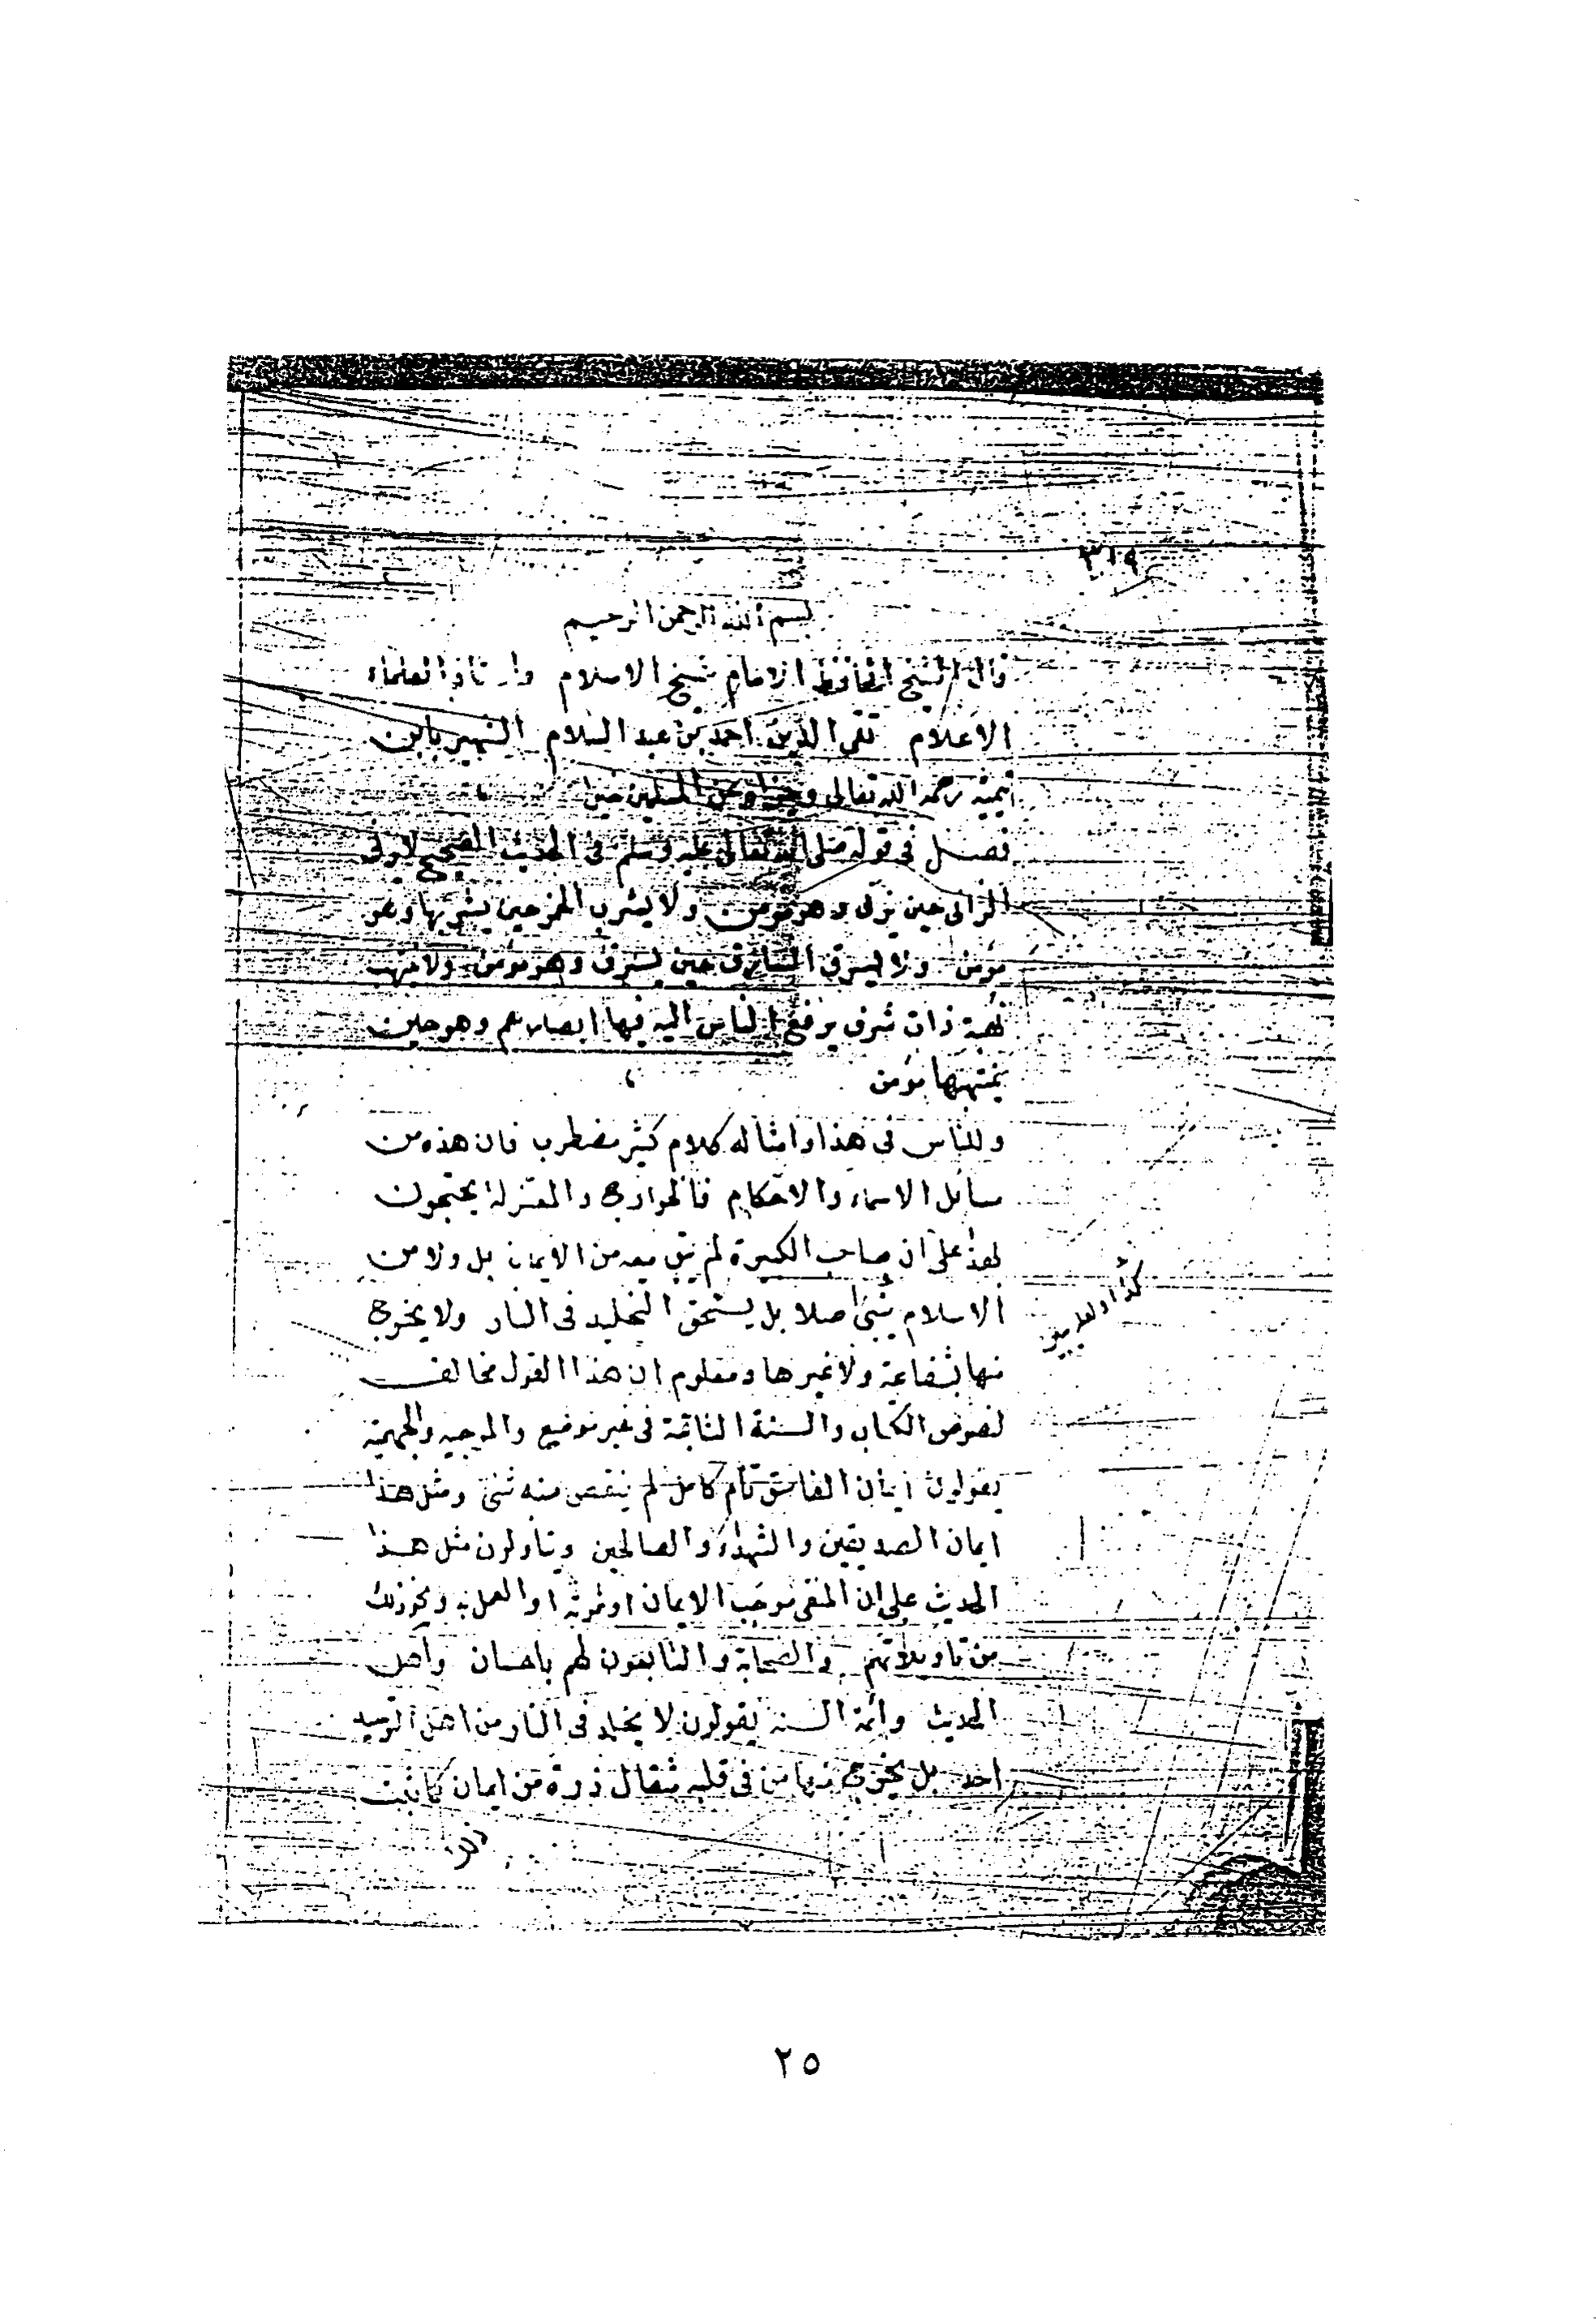 ٣١٩
بسم الله الرحمن الرحيم
قال الشيخ الحافظ الامام شيخ الاسلام واستاذ العلماء
الاعلام تقي الدين احمد بن عبد السلام الشهير بابن
تيمية رحمه الله تعالى وعن المسلمين
فصل في قوله صلى الله تعالى عليه وسلم في الحديث الصحيح لا يزني
الزاني حين يزني وهو مومن ولا يشرب الخمر حين يشربها وهو
مؤمن ولا يسرق السارق حين يسرق وهو مومن ولا ينهب
نهبة ذات شرف يرفع الناس اليه فيها ابصارهم وهو حين
ينتهبها مؤمن
وللناس في هذا وامثاله كلام كثير مضطرب فان هذه من
مسائل الاسماء والاحكام فالخوارج والمعتزلة يحتجون
بهذا على ان صاحب الكبيرة لم يبق معه من الايمان بل ولا من
الاسلام شئ اصلا بل يستحق التخليد في النار ولا يخرج
منها بشفاعة ولا غيرها ومعلوم ان هذا القول مخالف
لنصوص الكتاب والسنة الثابتة في غير موضع والمرجية والجهمية
يقولون ايمان الفاسق تام كامل لم ينقص منه شئ ومثل هذا
ايمان الصديقين والشهداء والصالحين ويتاولون مثل هذا
الحديث على ان المنفي موجب الايمان او ثمرته او العمل به ونحو ذلك
من تاويلاتهم والصحابة والتابعون لهم باحسان واهل
الحديث وائمة السنة يقولون لا يخلد في النار من اهل التوحيد
احد بل يخرج منها من في قلبه مثقال ذرة من ايمان كما ثبت
٢٥